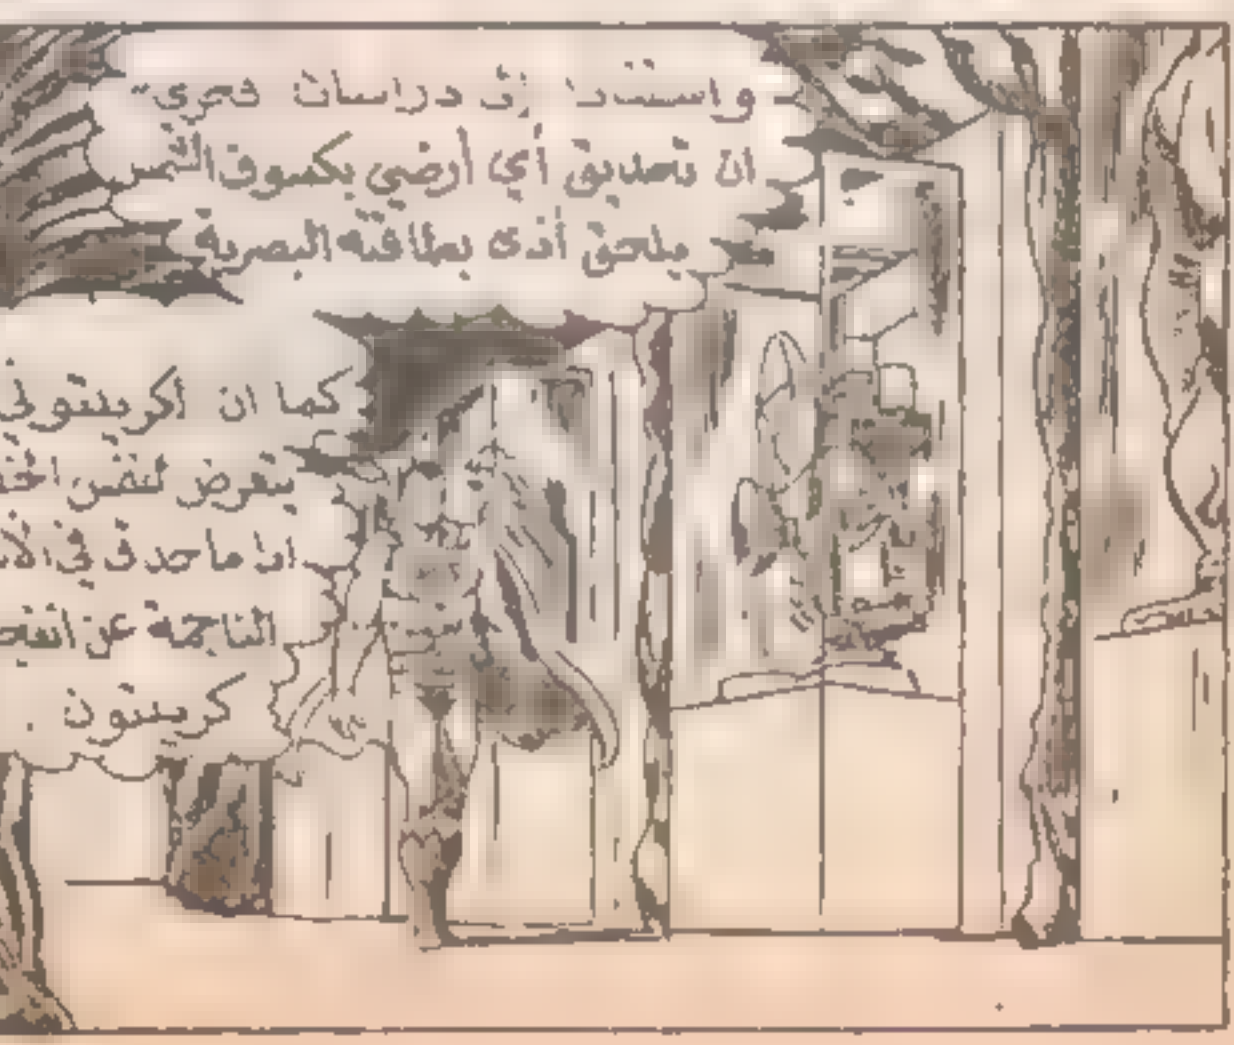 واستنادا إلى دراسات تجري
ان تحديق أي أرضي بكسوف الشمس
يلحق أذى بطاقته البصرية
كما ان أكريبتو في
يتعرض لنفس
اذا ما حدق في
الناجمة عن
كريبتون .